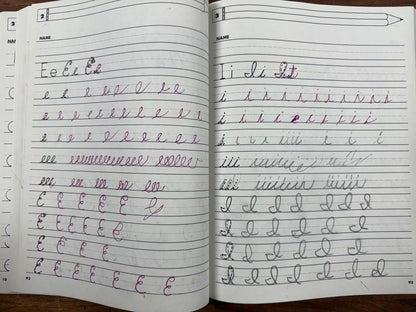 2
NAME
Ee Ee Ee
e e e e e e e e e
e e e e e e e e e e e
e e e e e e e e e e
eee eeeeeeeeeeeee eeeeeee
eee eee eee eee eee
E E E E E E
E E E E E E
E E E E E
E E E E E E E
92
2
NAME
Ii Ii Ii
i i i i i i i i i i i
i i i i i i i i i i
i i i i iii i i i i
iii iiiiiiii iii
iii iiiiiiiii iiiiii
I I I I I I I
I I I I I I
I I I I I I
I I I I I I I
93